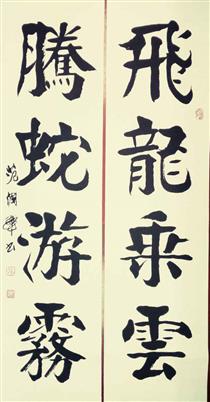 飛龍乘雲
騰蛇游霧